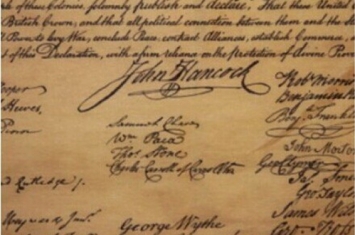 of these Colonies, solemnly publish and declare, That these United
British Crown, and that all political connection between them and the
to levy War, conclude Peace, contract Alliances, establish Commerce,
of this Declaration, with a firm reliance on the protection of divine
John Hancock
Rob Morris
Benjamin
Benj Franklin
Hewes,
Samuel Chase
Wm Paca
Thos Stone
Charles Carroll of Carrollton
John Morton
Geo Clymer
Jas
Geo Taylor
James
Rutledge
Heyward Junr
George Wythe
Geo